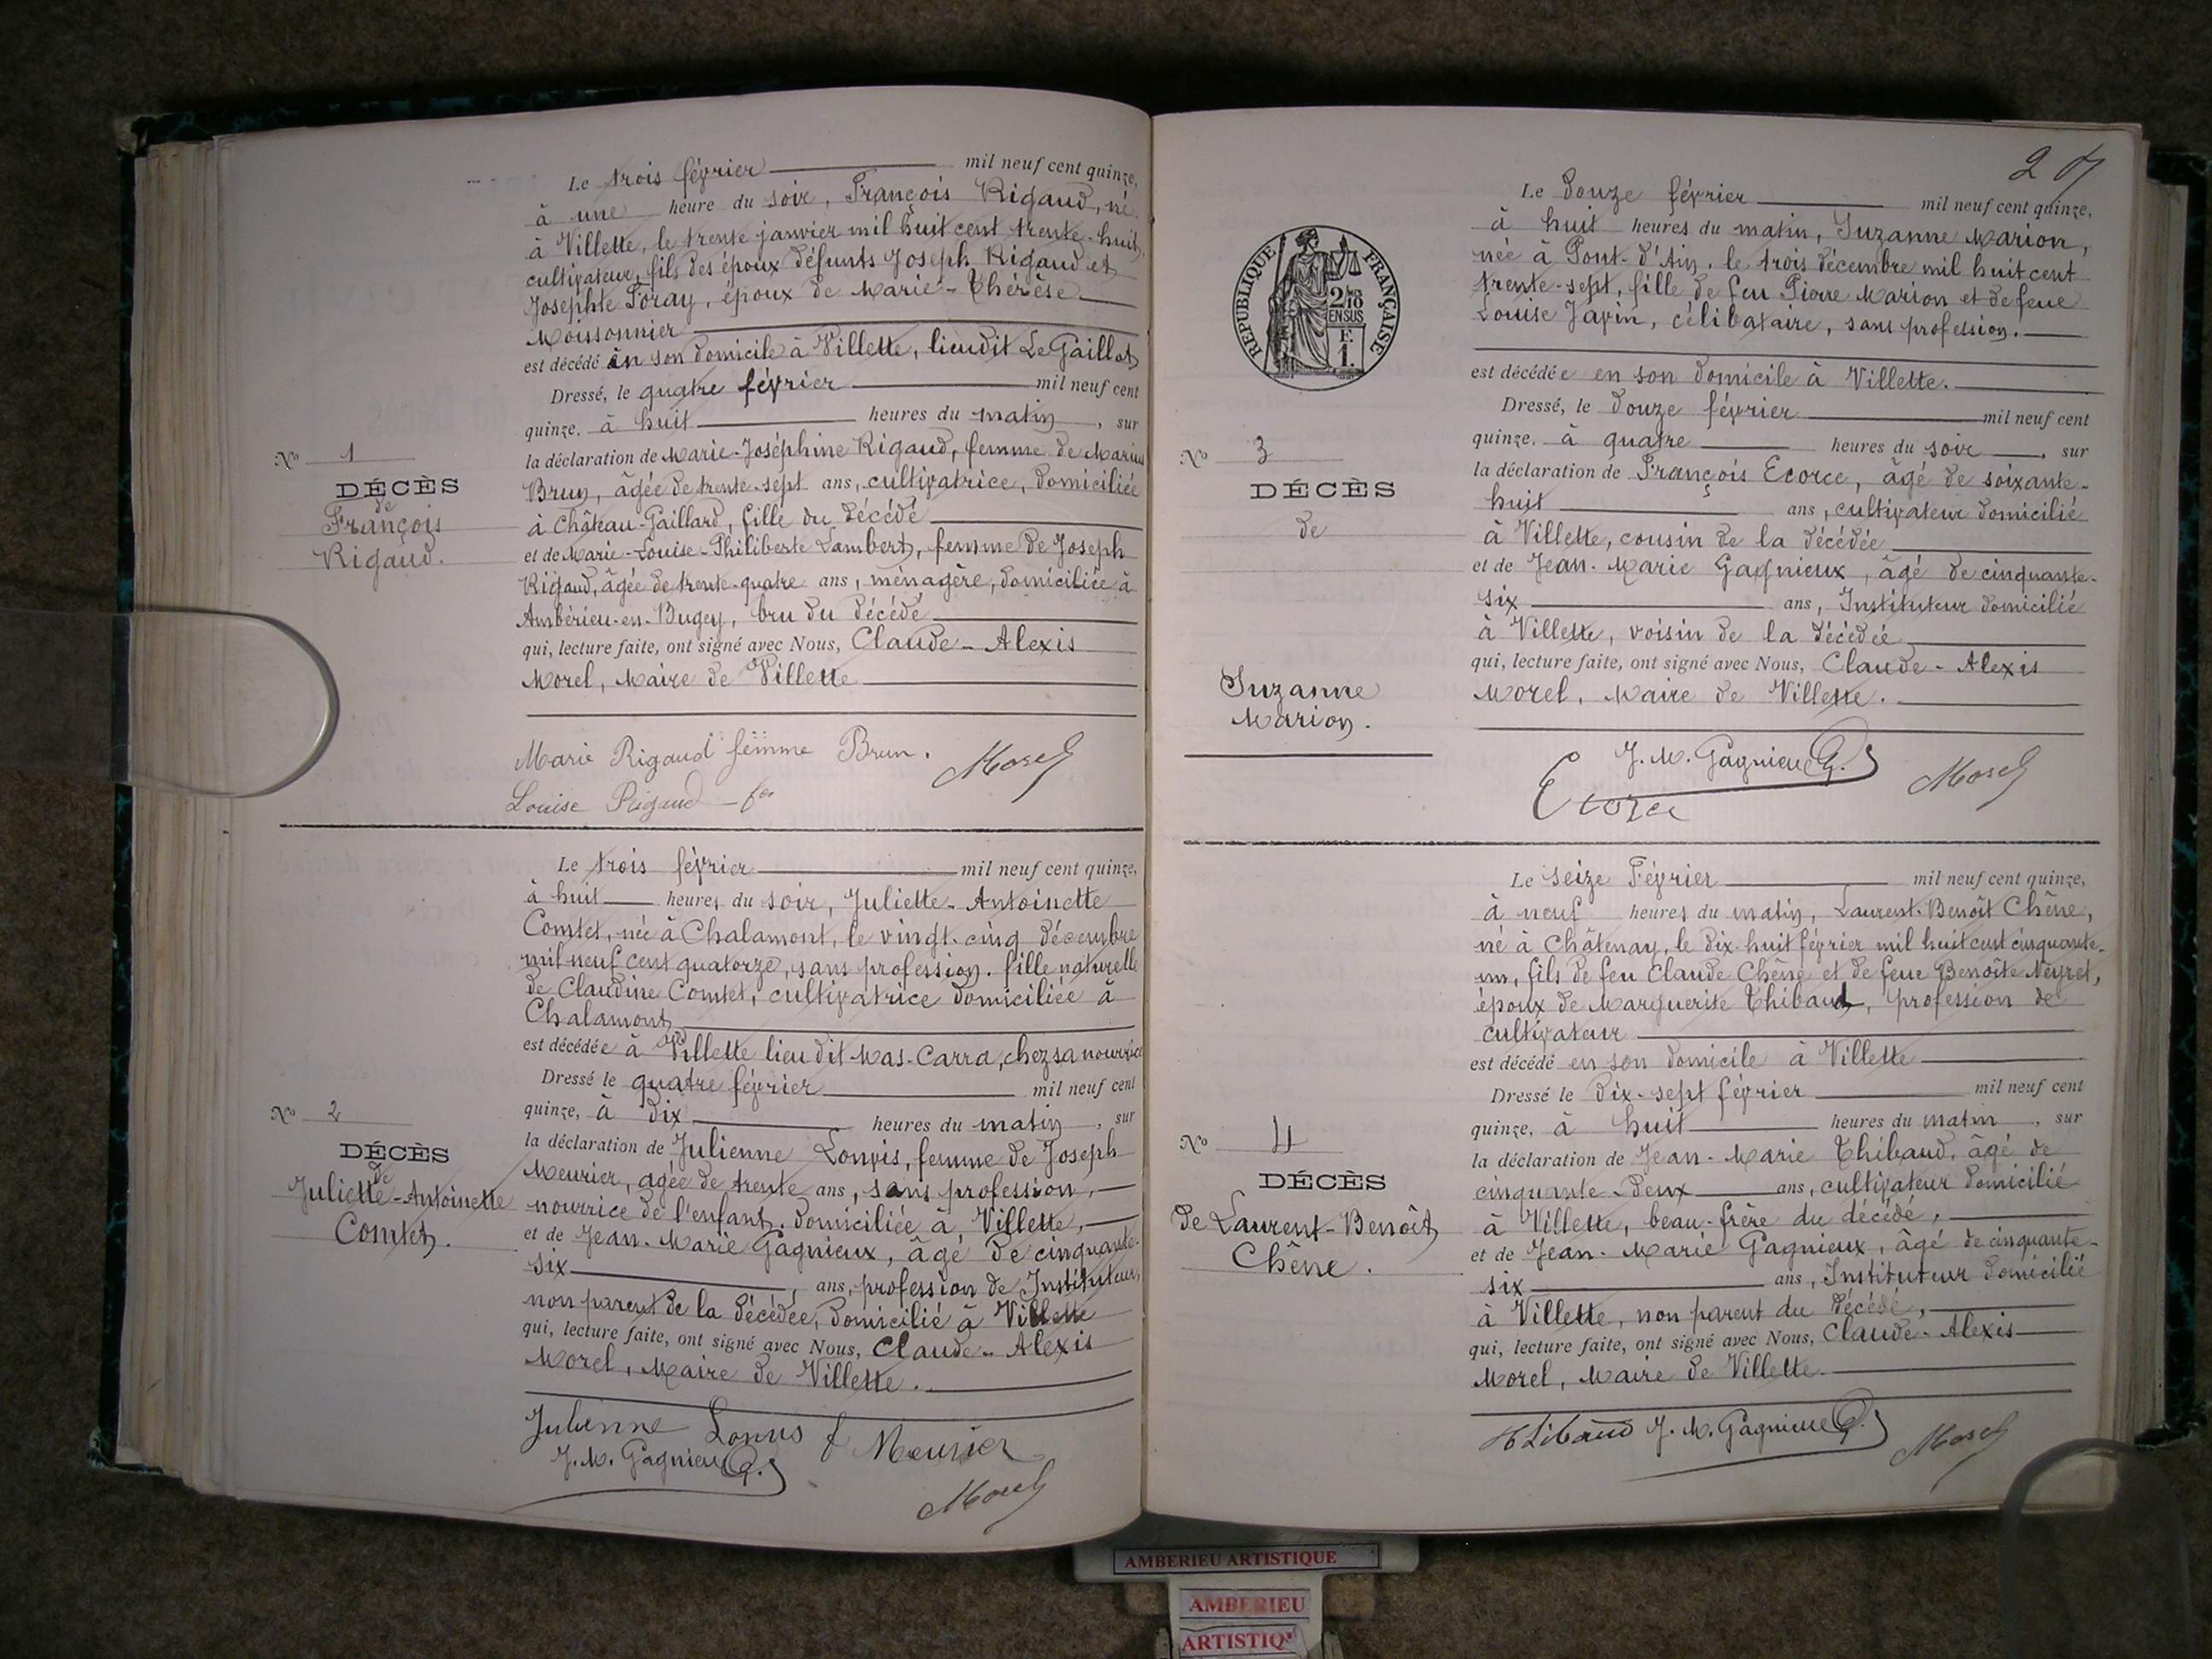 Le trois février mil neuf cent quinze,
à une heure du soir, François Rigaud, né
à Villette, le trente janvier mil huit cent trente-huit,
cultivateur, fils des époux défunts Joseph Rigaud et
Josephte Foray, époux de Marie-Thérèse
Moissonnier
est décédé en son domicile à Villette, lieudit Le Gaillot
Dressé, le quatre février mil neuf cent
quinze, à huit heures du matin, sur
la déclaration de Marie-Joséphine Rigaud, femme de Marius
Brun, âgée de trente-sept ans, cultivatrice, domiciliée
à Château-Gaillard, fille du décédé
et de Marie-Louise-Philiberte Lambert, femme de Joseph
Rigaud, âgée de trente-quatre ans, ménagère, domiciliée à
Ambérieu-en-Bugey, bru du décédé
qui, lecture faite, ont signé avec Nous, Claude-Alexis
Morel, Maire de Villette
No 1
DÉCÈS
de
François
Rigaud.
Marie Rigaud femme Brun.
Morel
Louise Rigaud
Le trois février mil neuf cent quinze,
à huit heures du soir, Juliette-Antoinette
Comtet, née à Chalamont, le vingt-cinq décembre
mil neuf cent quatorze, sans profession. fille naturelle
de Claudine Comtet, cultivatrice domiciliée à
Chalamont
est décédée à Villette lieu dit Mas-Carra, chez sa nourrice
Dressé le quatre février mil neuf cent
quinze, à dix heures du matin, sur
la déclaration de Julienne Lonvis, femme de Joseph
Meurier, agée de trente ans, sans profession,
nourrice de l'enfant, domiciliée à Villette,
et de Jean-Marie Gagnieux, âgé de cinquante-
six ans, profession de Instituteur,
non parent de la décédée, domicilié à Villette
qui, lecture faite, ont signé avec Nous, Claude-Alexis
Morel, Maire de Villette.
No 2
DÉCÈS
de
Juliette-Antoinette
Comtet.
Julienne Lonvis f Meurier
J. M. Gagnieux
Morel
27
RÉPUBLIQUE FRANÇAISE
2/10
EN SUS
F.
1.
Le douze février mil neuf cent quinze,
à huit heures du matin, Suzanne Marion,
née à Pont-d'Ain, le trois décembre mil huit cent
trente-sept, fille de feu Pierre Marion et de feue
Louise Javin, célibataire, sans profession.
est décédée en son domicile à Villette.
Dressé, le douze février mil neuf cent
quinze, à quatre heures du soir, sur
la déclaration de François Ecorce, âgé de soixante-
huit ans, cultivateur domicilié
à Villette, cousin de la décédée
et de Jean-Marie Gagnieux, âgé de cinquante-
six ans, Instituteur domicilié
à Villette, voisin de la décédée
qui, lecture faite, ont signé avec Nous, Claude-Alexis
Morel, Maire de Villette.
No 3
DÉCÈS
de
Suzanne
Marion.
J. M. Gagnieux
Morel
Ecorce
Le seize Février mil neuf cent quinze,
à neuf heures du matin, Laurent-Benoît Chêne,
né à Châtenay, le dix-huit février mil huit cent cinquante-
un, fils de feu Claude Chêne et de feue Benoîte Neyret,
époux de Marguerite Thibaud, profession de
cultivateur
est décédé en son domicile à Villette
Dressé le Dix-sept février mil neuf cent
quinze, à huit heures du matin, sur
la déclaration de Jean-Marie Thibaud, âgé de
cinquante-deux ans, cultivateur domicilié
à Villette, beau-frère du décédé,
et de Jean-Marie Gagnieux, âgé de cinquante-
six ans, Instituteur domicilié
à Villette, non parent du décédé,
qui, lecture faite, ont signé avec Nous, Claude-Alexis
Morel, Maire de Villette.
No 4
DÉCÈS
de Laurent-Benoît
Chêne.
Thibaud J. M. Gagnieux
Morel
AMBERIEU ARTISTIQUE
AMBERIEU
ARTISTIQ